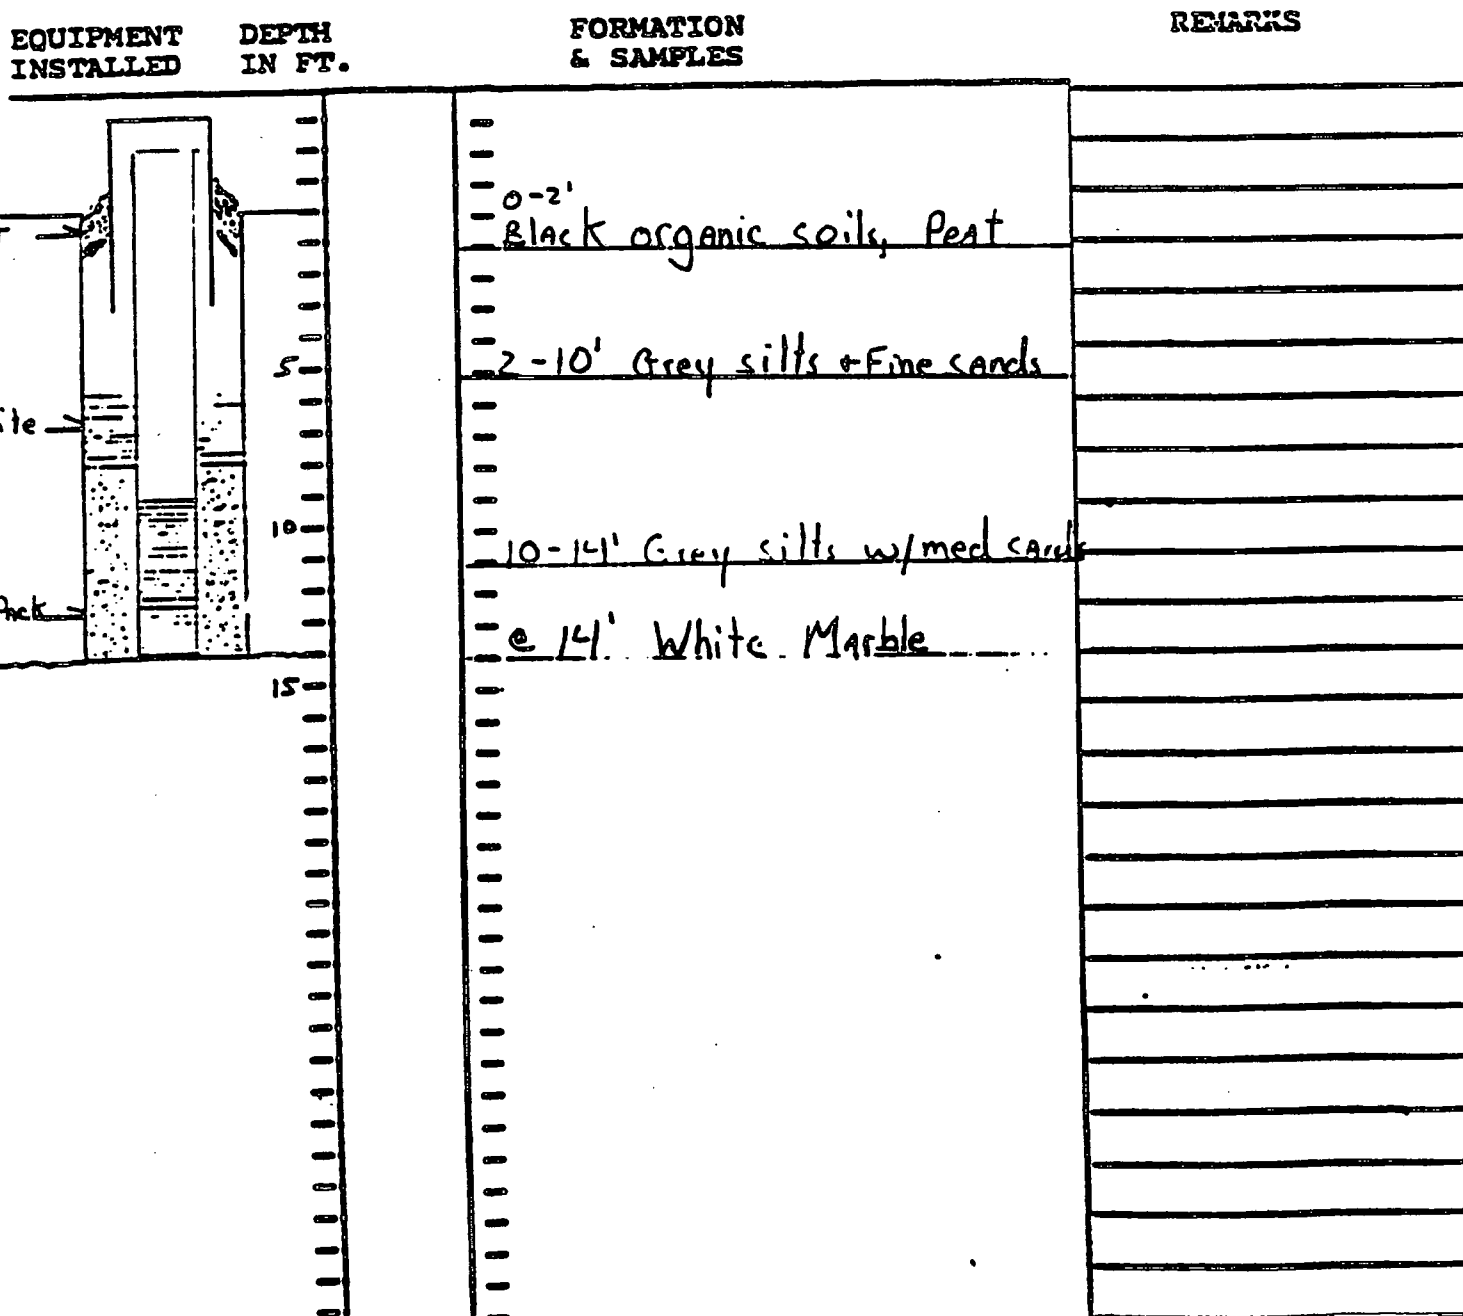 EQUIPMENT INSTALLED
DEPTH IN FT.
FORMATION & SAMPLES
REMARKS
0-2'
Black organic soils, Peat
5
2-10' Grey silts + Fine sands
10
10-14' Grey silts w/med sands
@ 14' White Marble
Pack
15